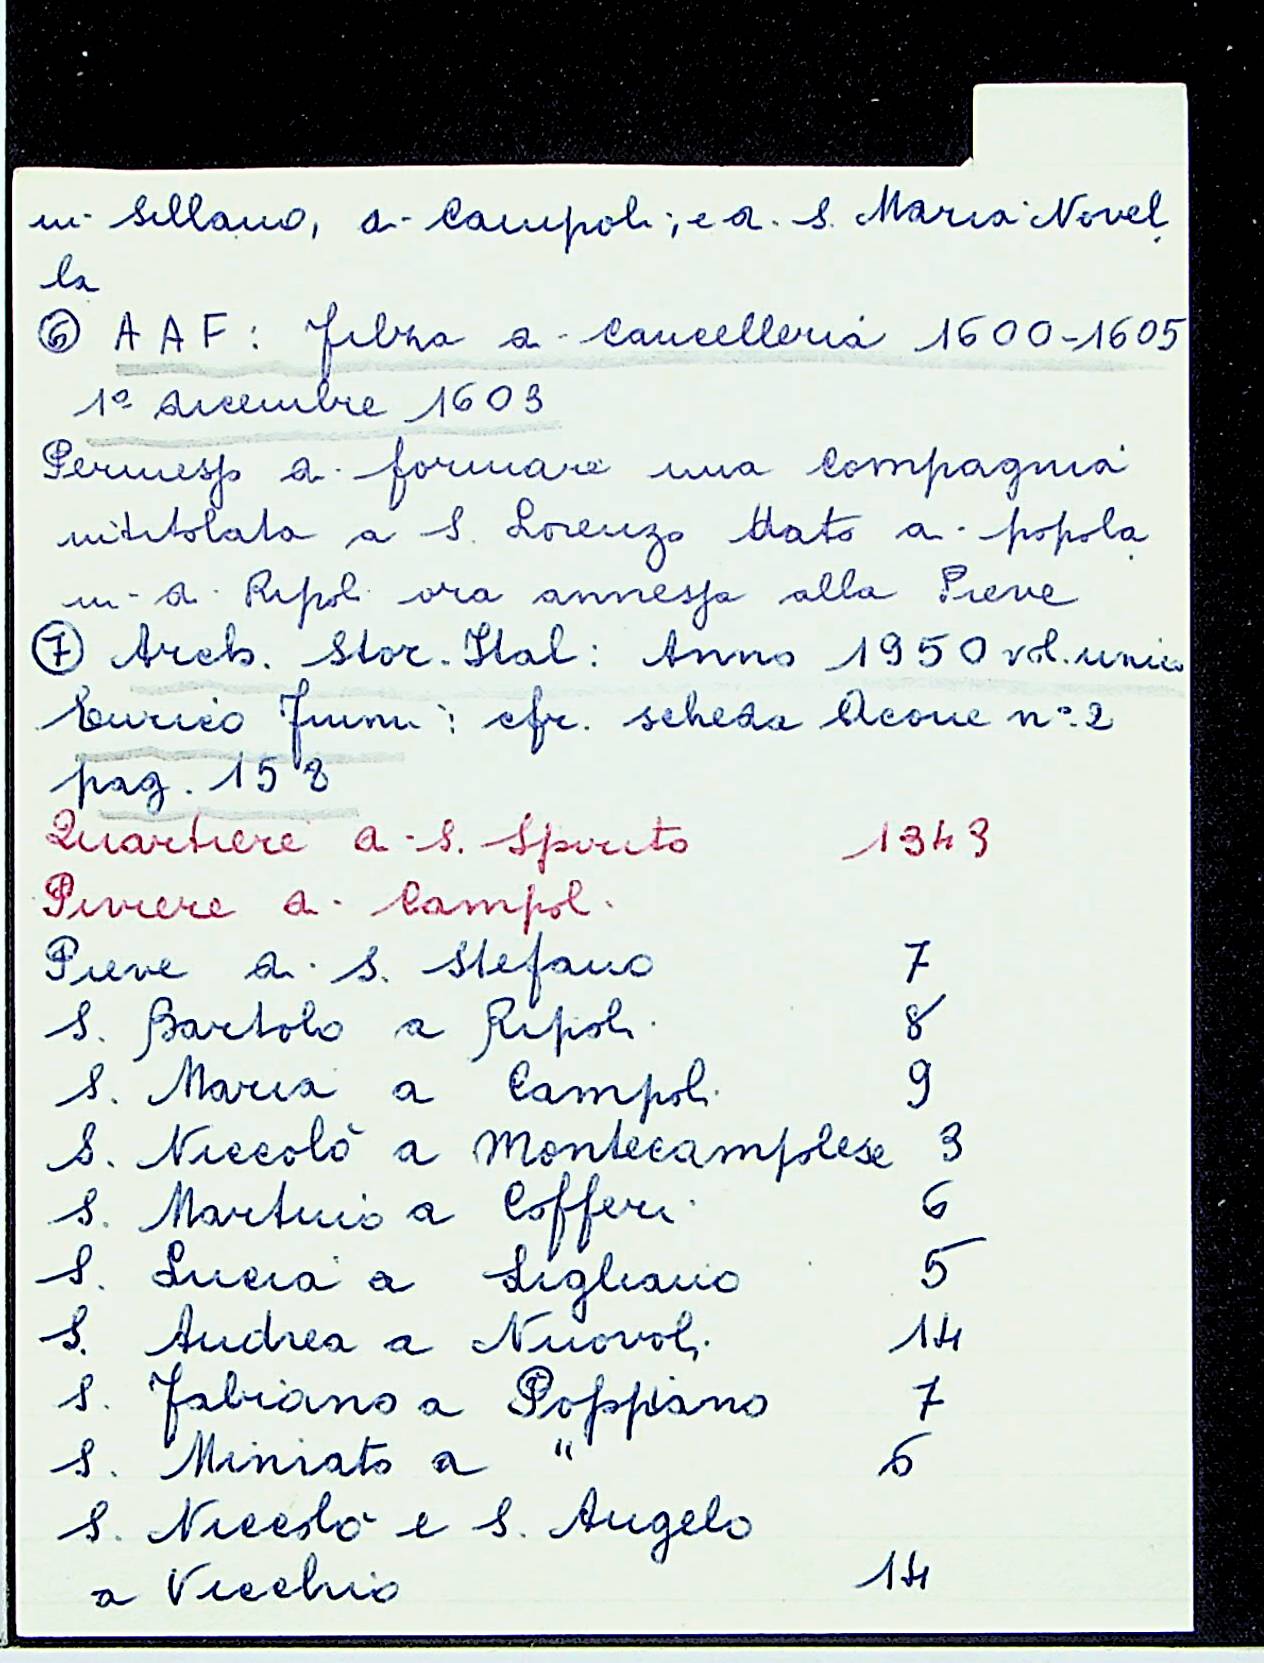 in Sillano, di Campoli; e di S. Maria Novel
la
⑥ AAF: Filza di Cancelleria 1600-1605
1º dicembre 1603
Permesso di formare una compagnia
intitolata a S. Lorenzo dato ai popola
ni di Ripoli ora annessa alla Pieve
⑦ Arch. Stor. Ital: Anno 1950 vol. unico
Enrico Fiumi: cfr. scheda Acone nº 2
pag. 158
Quartiere di S. Spirito 1343
Piviere di Campoli
Pieve di S. Stefano 7
S. Bartolo a Ripoli 8
S. Maria a Campoli 9
S. Niccolò a Montecampolese 3
S. Martino a Cofferi 6
S. Lucia a Sigliano 5
S. Andrea a Nuovoli 14
S. Fabiano a Poppiano 7
S. Miniato a " 6
S. Niccolò e S. Angelo
a Vicchio 14